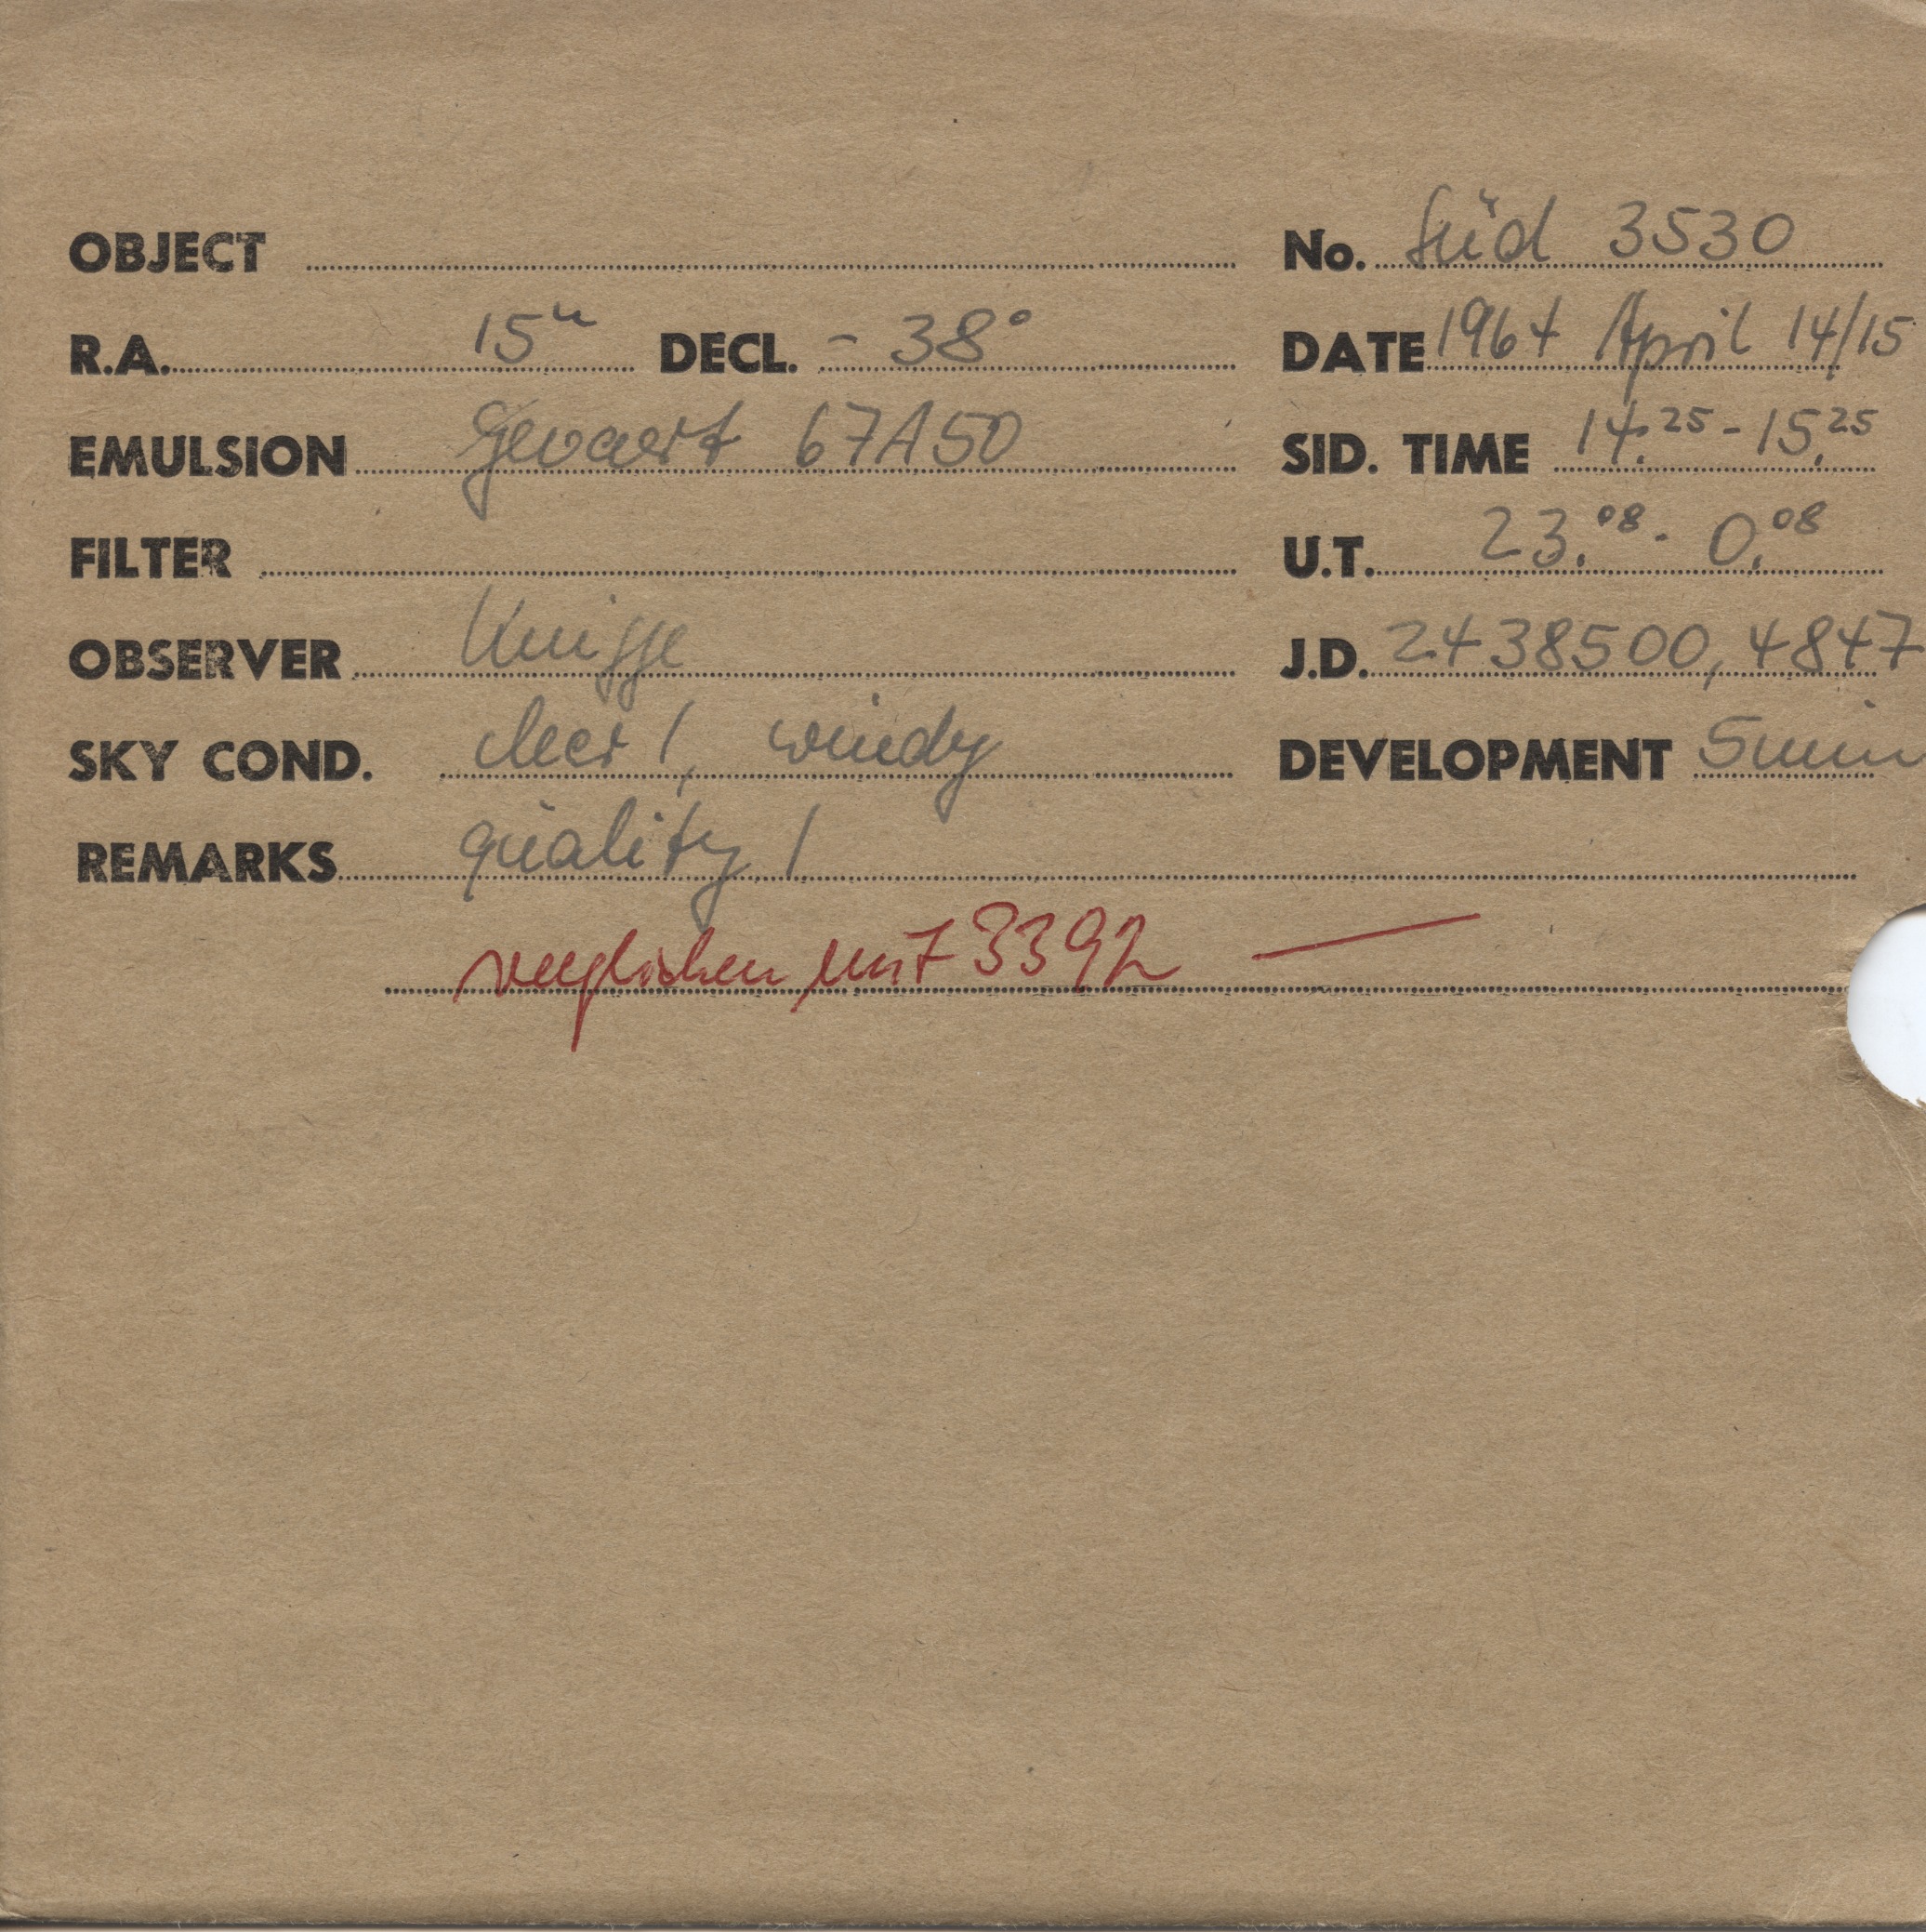 OBJECT No. Süd 3530
R.A. 15h DECL. - 38° DATE 1964 April 14/15
EMULSION Gevaert 67A50 SID. TIME 14.25 - 15.25
FILTER U.T. 23.08 - 0.08
OBSERVER Knigge J.D. 2438500,4847
SKY COND. clear 1, windy DEVELOPMENT 5 min
REMARKS quality 1
verglichen mit 3392 —